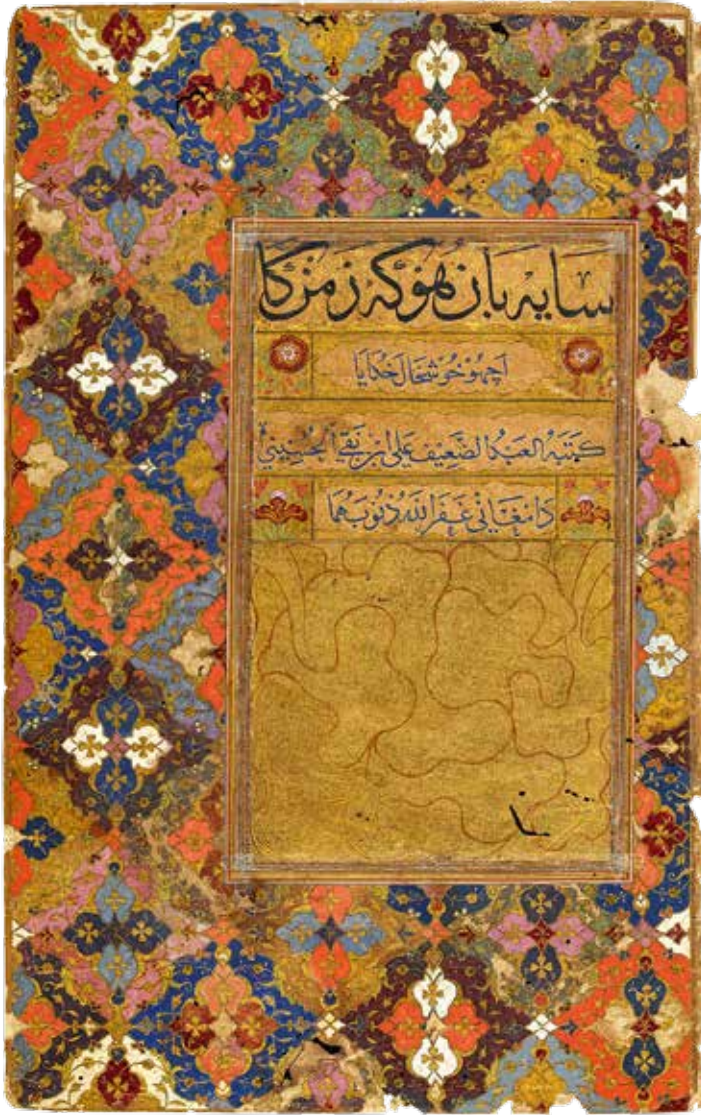 سَایه بَان زمن کَا
خُوشحَال خُدایَا
کتبهُ العبدُ الضَّعِیف علی ابن نقی الحُسَینی
دَامغَانی غَفَرَ اللهُ ذُنُوبَهُمَا